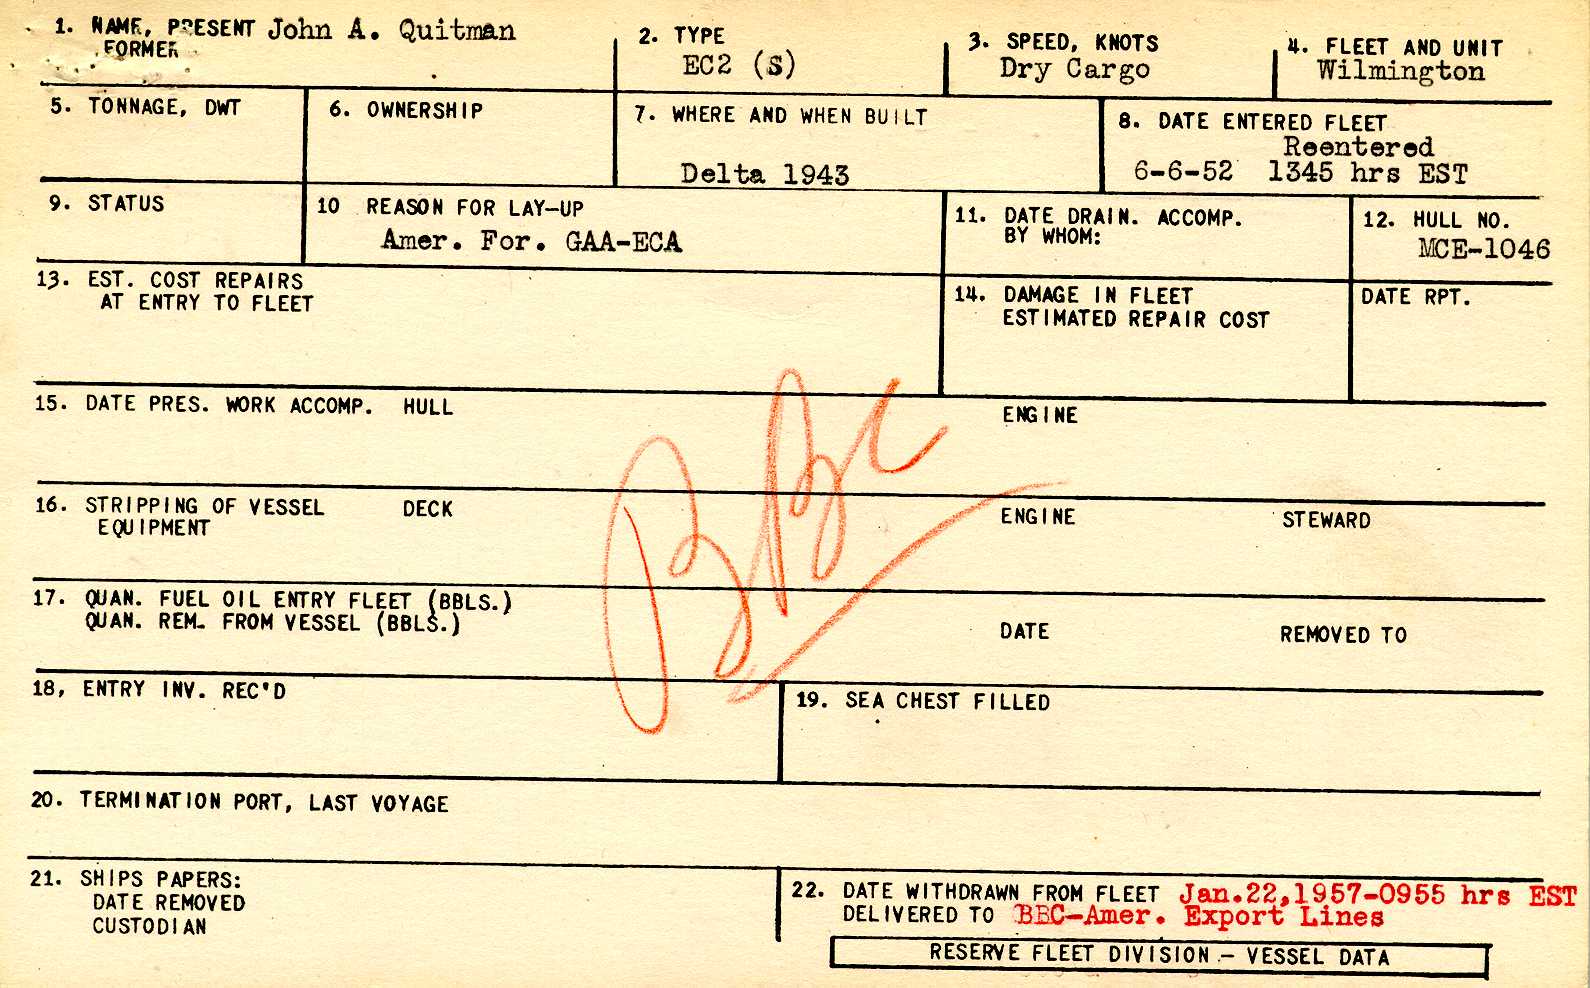 1. NAME, PRESENT John A. Quitman
FORMER
2. TYPE
EC2 (S)
3. SPEED, KNOTS
Dry Cargo
4. FLEET AND UNIT
Wilmington
5. TONNAGE, DWT
6. OWNERSHIP
7. WHERE AND WHEN BUILT
Delta 1943
8. DATE ENTERED FLEET
Reentered
6-6-52 1345 hrs EST
9. STATUS
10 REASON FOR LAY-UP
Amer. For. GAA-ECA
11. DATE DRAIN. ACCOMP.
BY WHOM:
12. HULL NO.
MCE-1046
13. EST. COST REPAIRS
AT ENTRY TO FLEET
14. DAMAGE IN FLEET
ESTIMATED REPAIR COST
DATE RPT.
15. DATE PRES. WORK ACCOMP. HULL
ENGINE
BBC
16. STRIPPING OF VESSEL DECK
EQUIPMENT
ENGINE
STEWARD
17. QUAN. FUEL OIL ENTRY FLEET (BBLS.)
QUAN. REM. FROM VESSEL (BBLS.)
DATE
REMOVED TO
18, ENTRY INV. REC'D
19. SEA CHEST FILLED
20. TERMINATION PORT, LAST VOYAGE
21. SHIPS PAPERS:
DATE REMOVED
CUSTODIAN
22. DATE WITHDRAWN FROM FLEET Jan.22,1957-0955 hrs EST
DELIVERED TO BBC-Amer. Export Lines
RESERVE FLEET DIVISION - VESSEL DATA